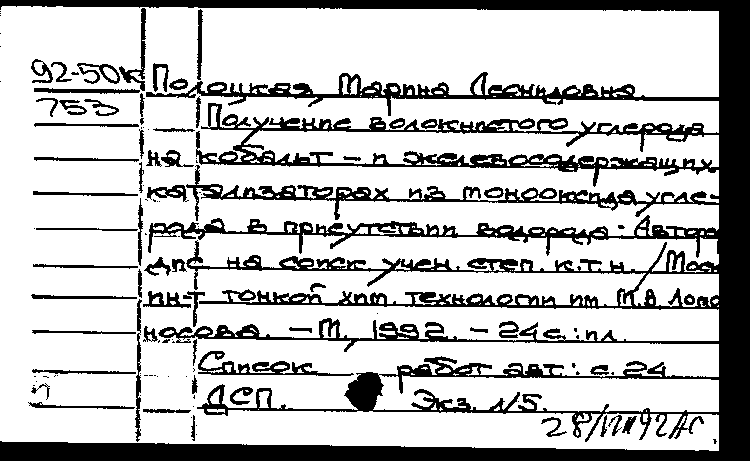 92-50к Полоцкая, Марина Леонидовна.
753 Получение волокнистого углерода
на кобальт – и железосодержащих
катализаторах из монооксида угле-
рода в присутствии водорода: Авторе
дис на соиск учен. степ. к.т.н. / Моск
ин-т тонкой хим. технологии им. М.В Ломо
носова. – М., 1992. – 24 с.: ил.
Список работ авт.: с. 24
ДСП. Экз. №5.
28/VII92